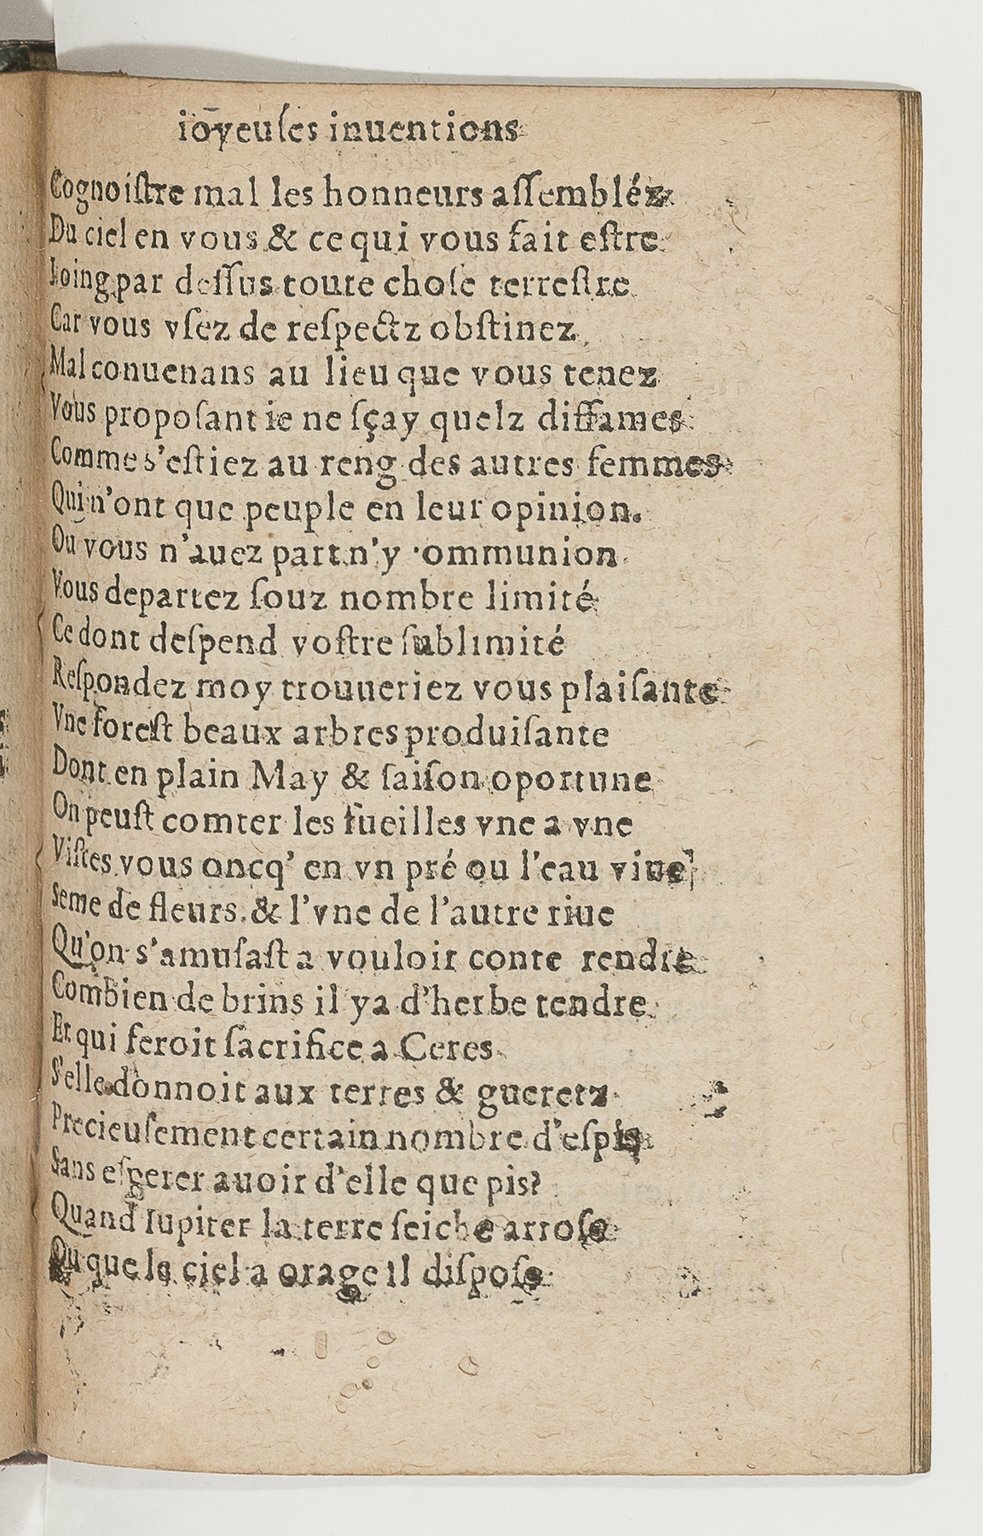 ioyeuſes inuentions
Cognoiſtre mal les honneurs aſſembléz
Du ciel en vous & ce qui vous fait eſtre
Loing par deſſus toute choſe terreſtre
Car vous vſez de reſpectz obſtinez
Mal conuenans au lieu que vous tenez
Vous propoſant ie ne ſçay quelz diffames
Comme s'eſtiez au reng des autres femmes
Qui n'ont que peuple en leur opinion.
Ou vous n'auez part n'y ommunion
Vous departez ſouz nombre limité
Ce dont deſpend voſtre ſublimité
Reſpondez moy trouueriez vous plaiſante
Vne foreſt beaux arbres produiſante
Dont en plain May & ſaiſon oportune
On peuſt comter les fueilles vne a vne
Viſtes vous oncq' en vn pré ou l'eau viue
Seme de fleurs, & l'vne de l'autre riue
Qu'on s'amuſaſt a vouloir conte rendre
Combien de brins il ya d'herbe tendre
Et qui feroit ſacrifice a Ceres
S'elle donnoit aux terres & gueretz
Precieuſement certain nombre d'eſpis
Sans eſperer auoir d'elle que pis?
Quand Iupiter la terre ſeiche arroſe
Ou que le ciel a orage il diſpoſe